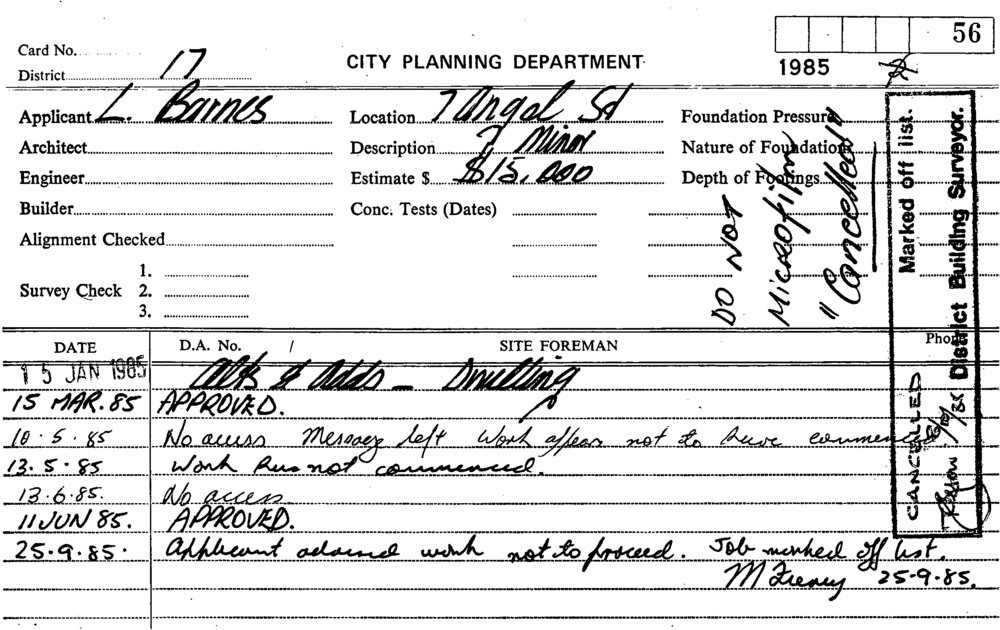 56
Card No.
1985
District 17
CITY PLANNING DEPARTMENT
Applicant L. Barnes
Location 7 Angel St
Foundation Pressure
Architect
Description Minor
Nature of Foundation
Engineer
Estimate $ $15,000
Depth of Footings
Builder
Conc. Tests (Dates)
Alignment Checked
1.
Survey Check 2.
3.
DO NOT
MICROFILM
"Cancelled"
Marked off list.
District Building Surveyor.
CANCELLED
Reason
DATE D.A. No. / SITE FOREMAN Phone
15 JAN 1985 Alts & Adds - Dwelling
15 MAR. 85 APPROVED.
10.5.85 No access Message left Work appears not to have commenced
13.5.85 Work has not commenced.
13.6.85. No access
11 JUN 85. APPROVED.
25.9.85. Applicant advised work not to proceed. Job marked off list.
25.9.85.